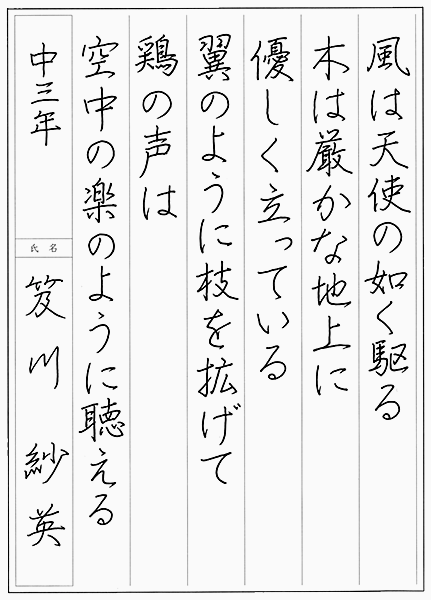 風は天使の如く駆る
木は厳かな地上に
優しく立っている
翼のように枝を拡げて
鶏の声は
空中の楽のように聴える
中三年
氏名
笈川紗英